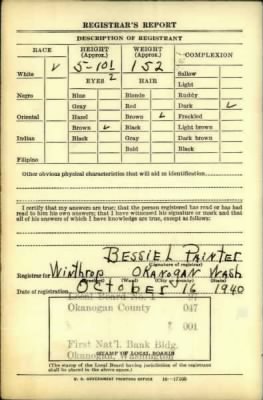 REGISTRAR'S REPORT
DESCRIPTION OF REGISTRANT
RACE HEIGHT (Approx.) WEIGHT (Approx.) COMPLEXION
5-10½ 152
White ✓ Sallow
EYES HAIR Light
Negro Blue Blonde Ruddy
Gray Red Dark ✓
Oriental Hazel Brown ✓ Freckled
Brown ✓ Black Light brown
Indian Black Gray Dark brown
Bald Black
Filipino
Other obvious physical characteristics that will aid in identification
I certify that my answers are true; that the person registered has read or has had
read to him his own answers; that I have witnessed his signature or mark and that
all of his answers of which I have knowledge are true, except as follows:
BESSIE L PAINTER
(Signature of registrar)
Registrar for Winthrop OKANOGAN WASH
(Precinct) (Ward) (City or county) (State)
Date of registration OCTOBER 16 1940
Local Board No. 1 97
Okanogan County 047
001
First Nat'l. Bank Bldg.
Okanogan, Washington
STAMP OF LOCAL BOARD
(The stamp of the Local Board having jurisdiction of the registrant
shall be placed in the above space.)
U. S. GOVERNMENT PRINTING OFFICE